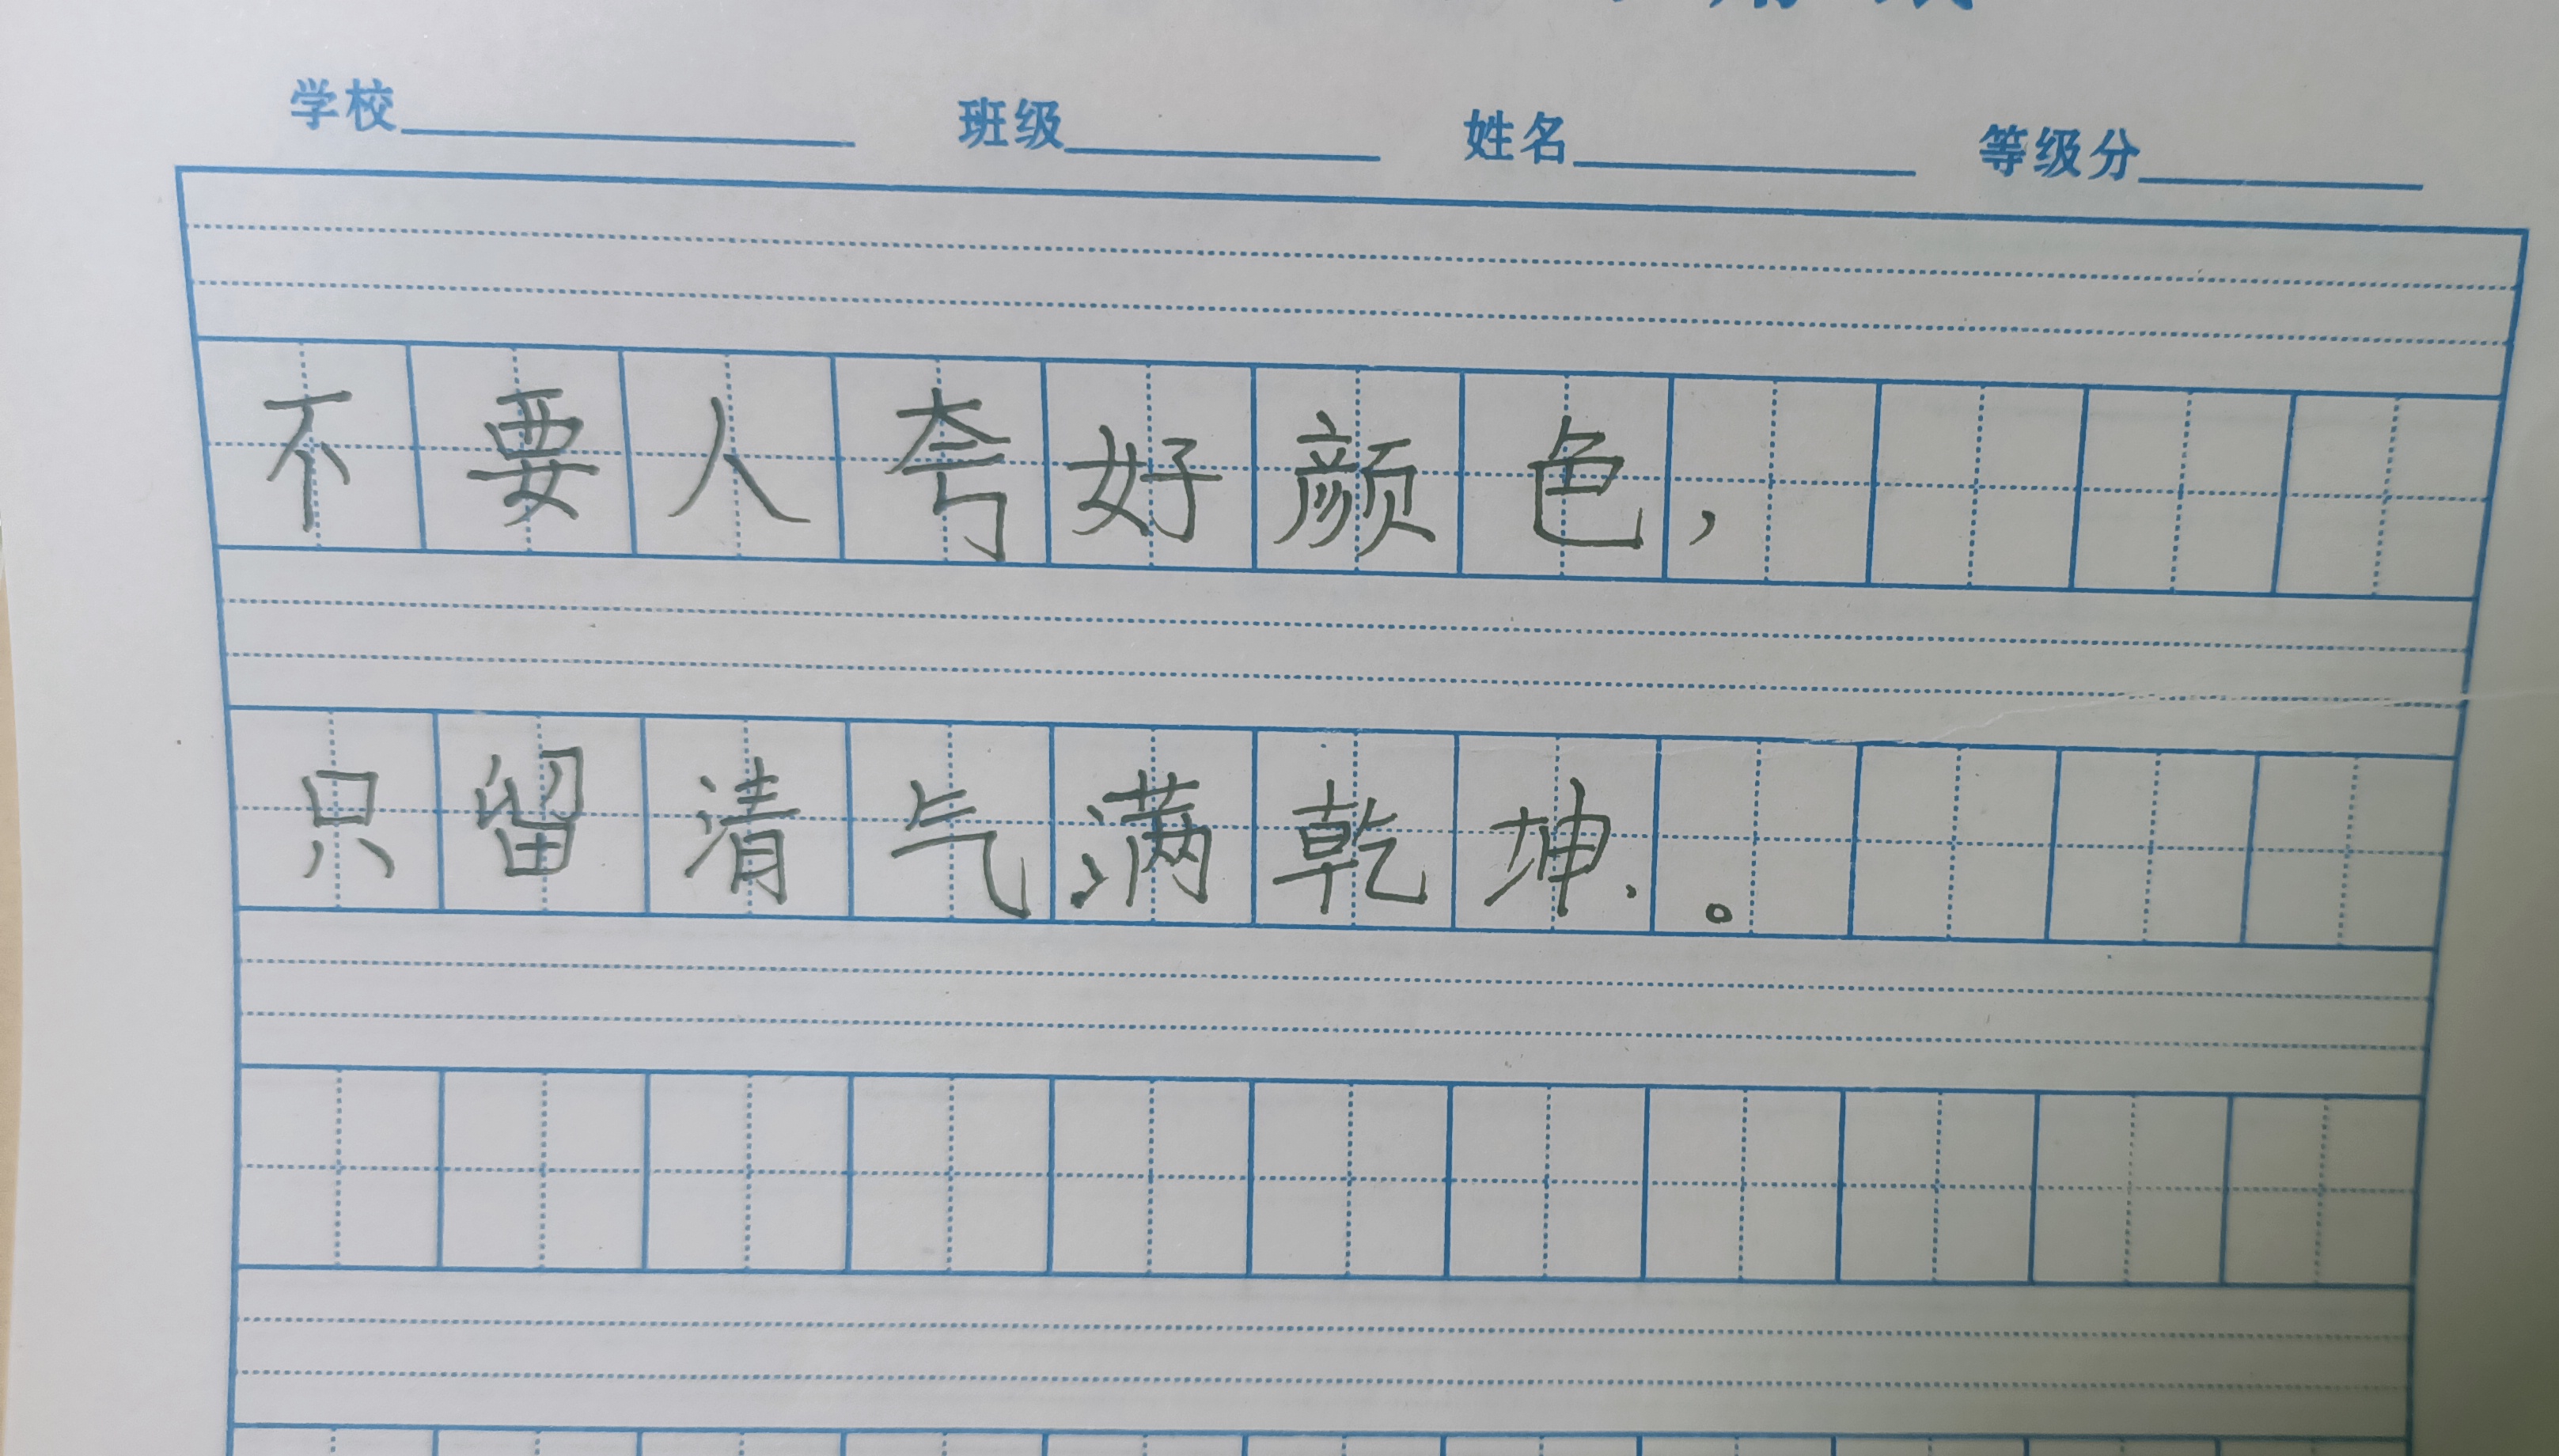 学校 班级 姓名 等级分
不要人夸好颜色，
只留清气满乾坤。